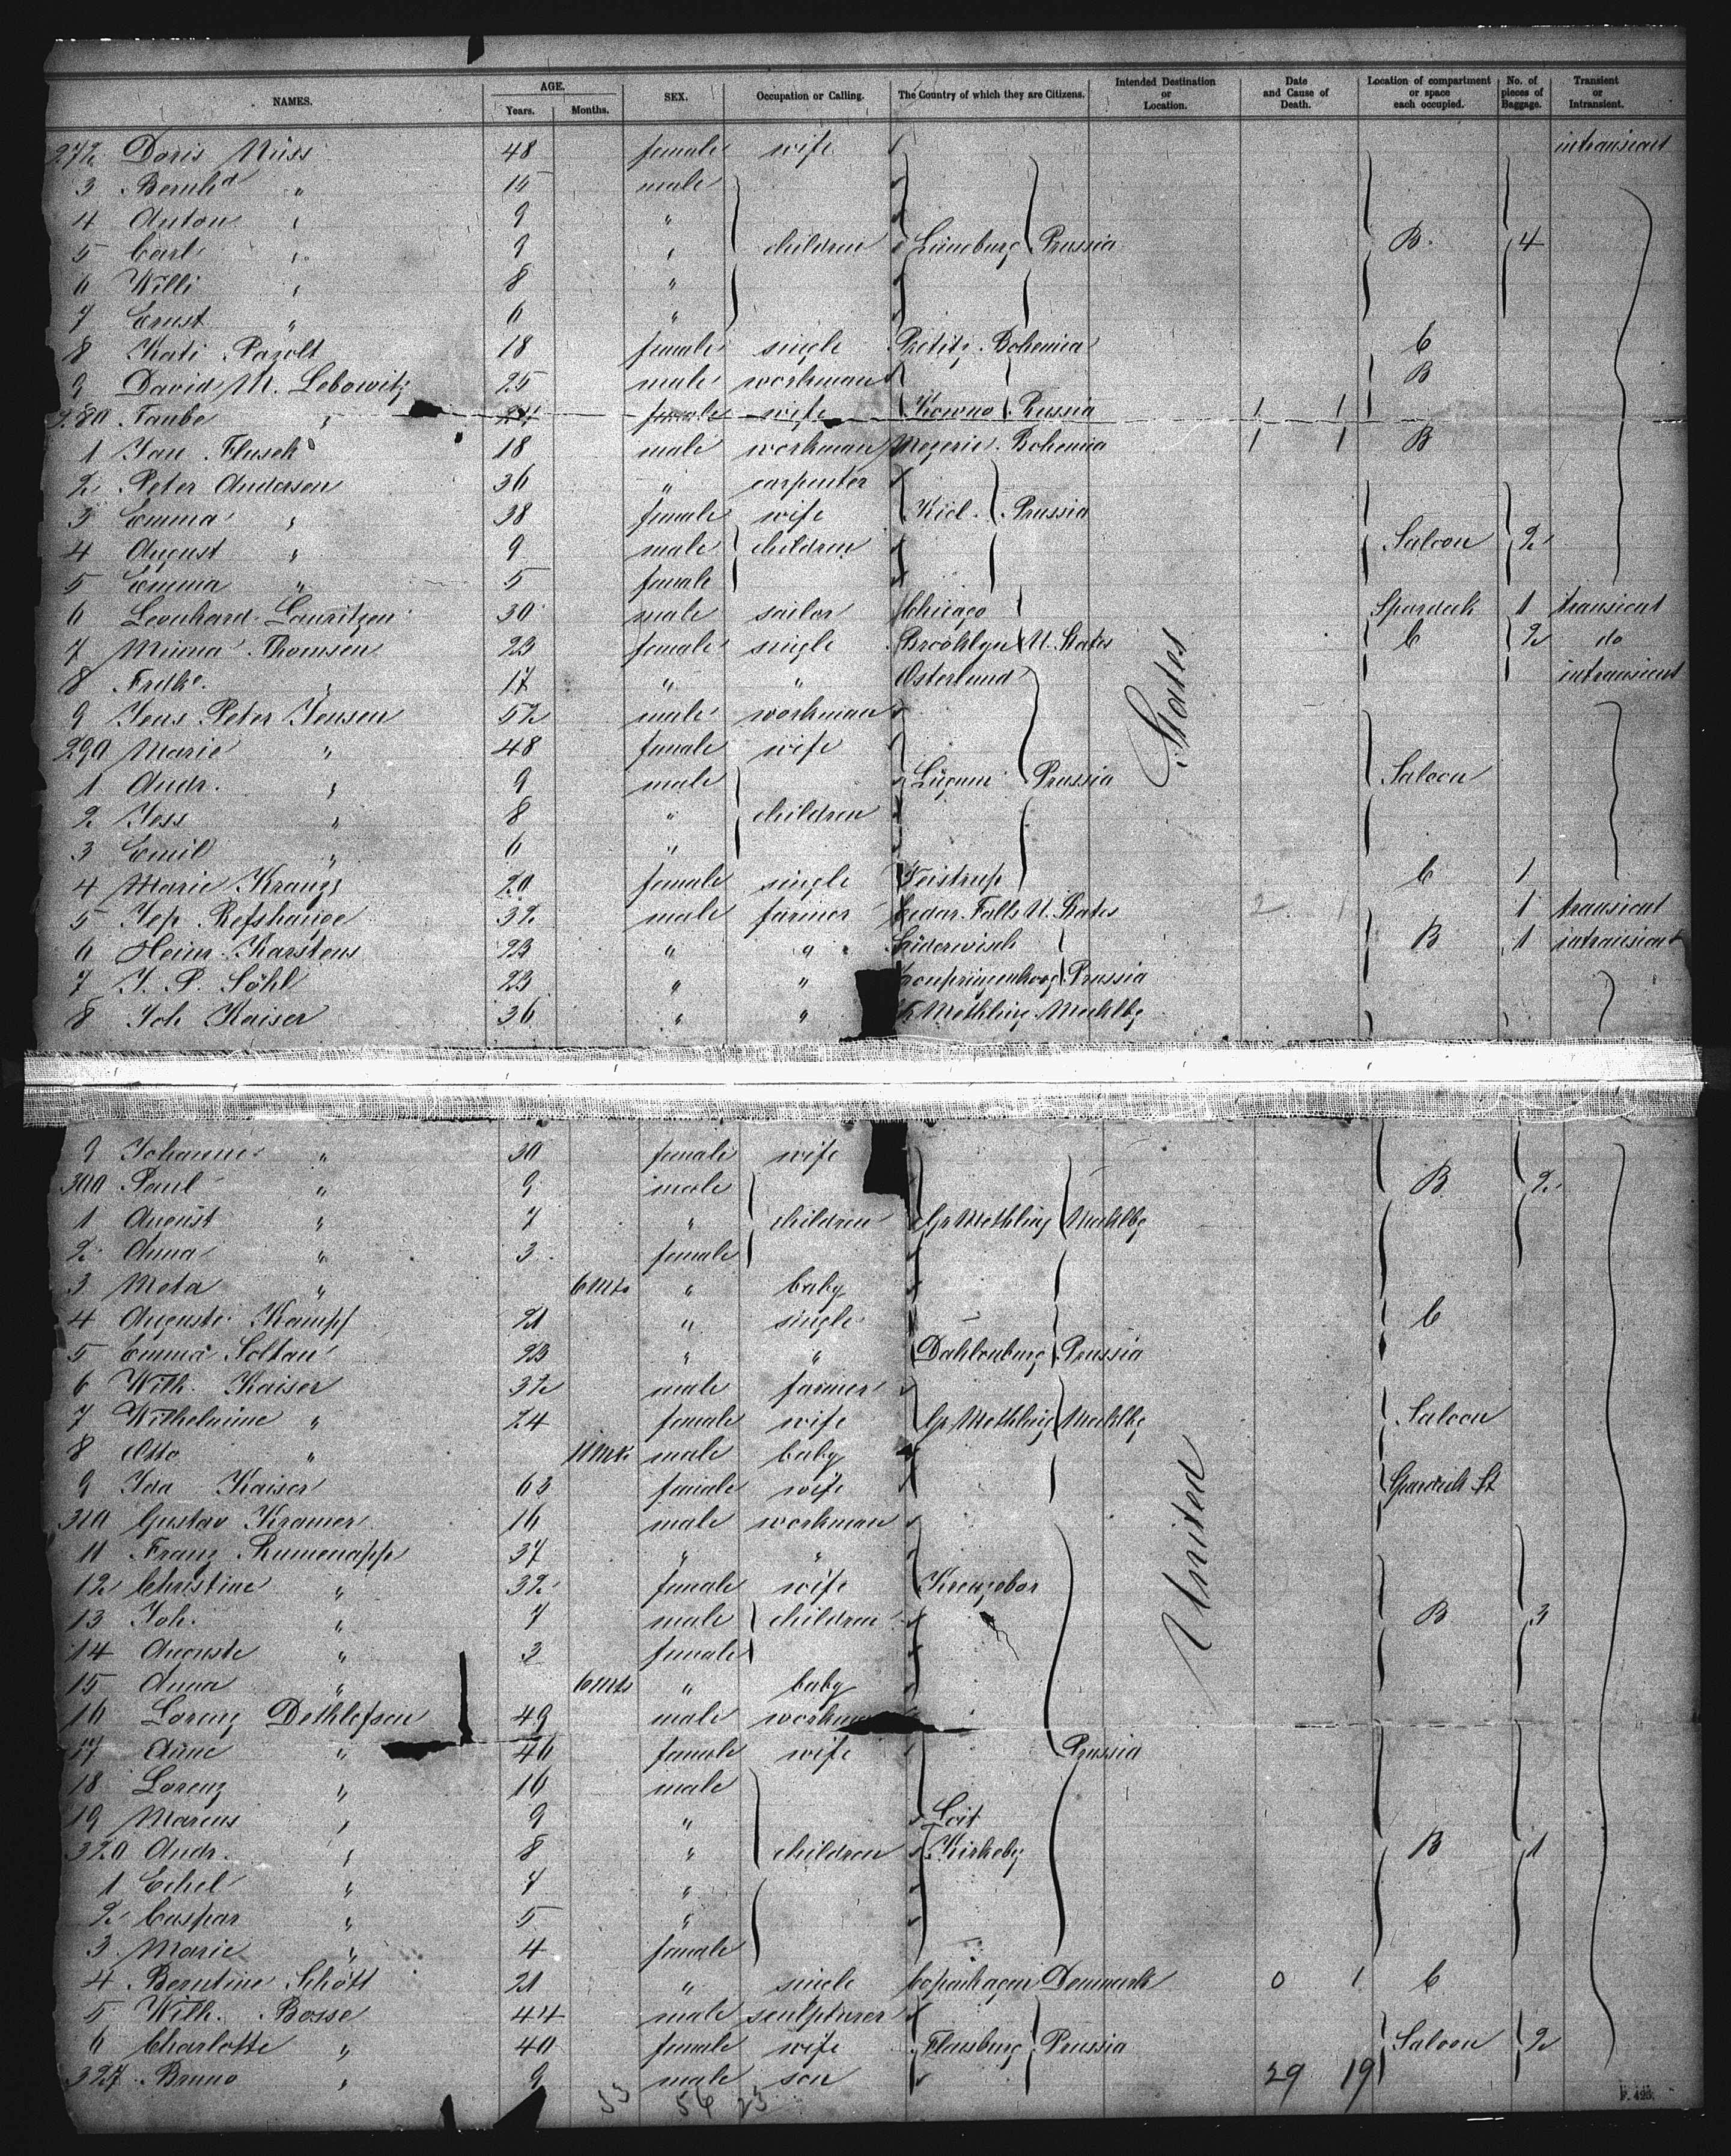 NAMES. AGE. Years. Months. SEX. Occupation or Calling. The Country of which they are Citizens. Intended Destination or Location. Date and Cause of Death. Location of compartment or space each occupied. No. of pieces of Baggage. Transient or Intransient.
272 Doris Nüss 48 female wife intransient
3 Bernhd " 15 male
4 Anton " 9 "
5 Carl " 9 " children Lüneburg Prussia B. 4
6 Willi " 8 "
7 Ernst " 6 "
8 Kati Pazolt 18 female single Pretitz Bohemia C
9 David M. Lebowitz 25 male workman B
280 Taube " 24 female wife Kowno Russia 1 1
1 Jan Flusek 18 male workman Mezeric Bohemia 1 1 B
2 Peter Andersen 36 " carpenter
3 Emma " 38 female wife Kiel Prussia
4 August " 9 male children Saloon 2
5 Emma " 5 female
6 Leonhard Lauritzen 30 male sailor Chicago Spardeck 1 transient
7 Minna Thomsen 23 female single Brooklyn U. States C 2 do
8 Fredke. " 17 " " Osterlund intransient
9 Jens Peter Jensen 52 male workman
290 Marie " 48 female wife
1 Andr. " 9 male Lügum Prussia Saloon
2 Jess " 8 " children
3 Emil " 6 "
4 Marie Kranzz 20 female single Feistrup C 1
5 Jep Refshauge 32 male farmer Cedar Falls U. States 2 1 1 transient
6 Heinr. Karstens 23 " " Süderwisch B 1 intransient
7 J. P. Söhl 23 " " Kronprinzenkoog Prussia
8 Joh Kaiser 36 " " Gr Methling Mecklbg
9 Johanne " 30 female wife
300 Paul " 9 male B 2
1 August " 7 " children Gr Methling Mecklbg
2 Anna " 3 female
3 Meta " 6 Mts " baby
4 Auguste Kampf 21 " single C
5 Emma Soltau 23 " " Dahlenburg Prussia
6 Wilh. Kaiser 32 male farmer
7 Wilhelmine " 24 female wife Gr Methling Mecklbg Saloon
8 Otto " 11 Mts male baby
9 Ida Kaiser 63 female wife Spardeck St
310 Gustav Kramer 16 male workman
11 Franz Rumenapp 37 " "
12 Christine " 32 female wife
13 Joh. " 7 male children B 3
14 Auguste " 3 female
15 Anna " 6 Mts " baby
16 Lorenz Dethlefsen 49 male workman
17 Anne " 46 female wife Prussia
18 Lorenz " 16 male
19 Marcus " 9 " Loit
320 Andr. " 8 " children Kirkeby B 1
1 Echel " 7 "
2 Caspar " 5 "
3 Marie " 4 female
4 Berntine Schött 21 " single Copenhagen Denmark 0 1 C
5 Wilh. Bosse 44 male sculpturer
6 Charlotte " 40 female wife Flensburg Prussia Saloon 2
327 Bruno " 9 male son 29 19
53 56 23
United States
F. 493.